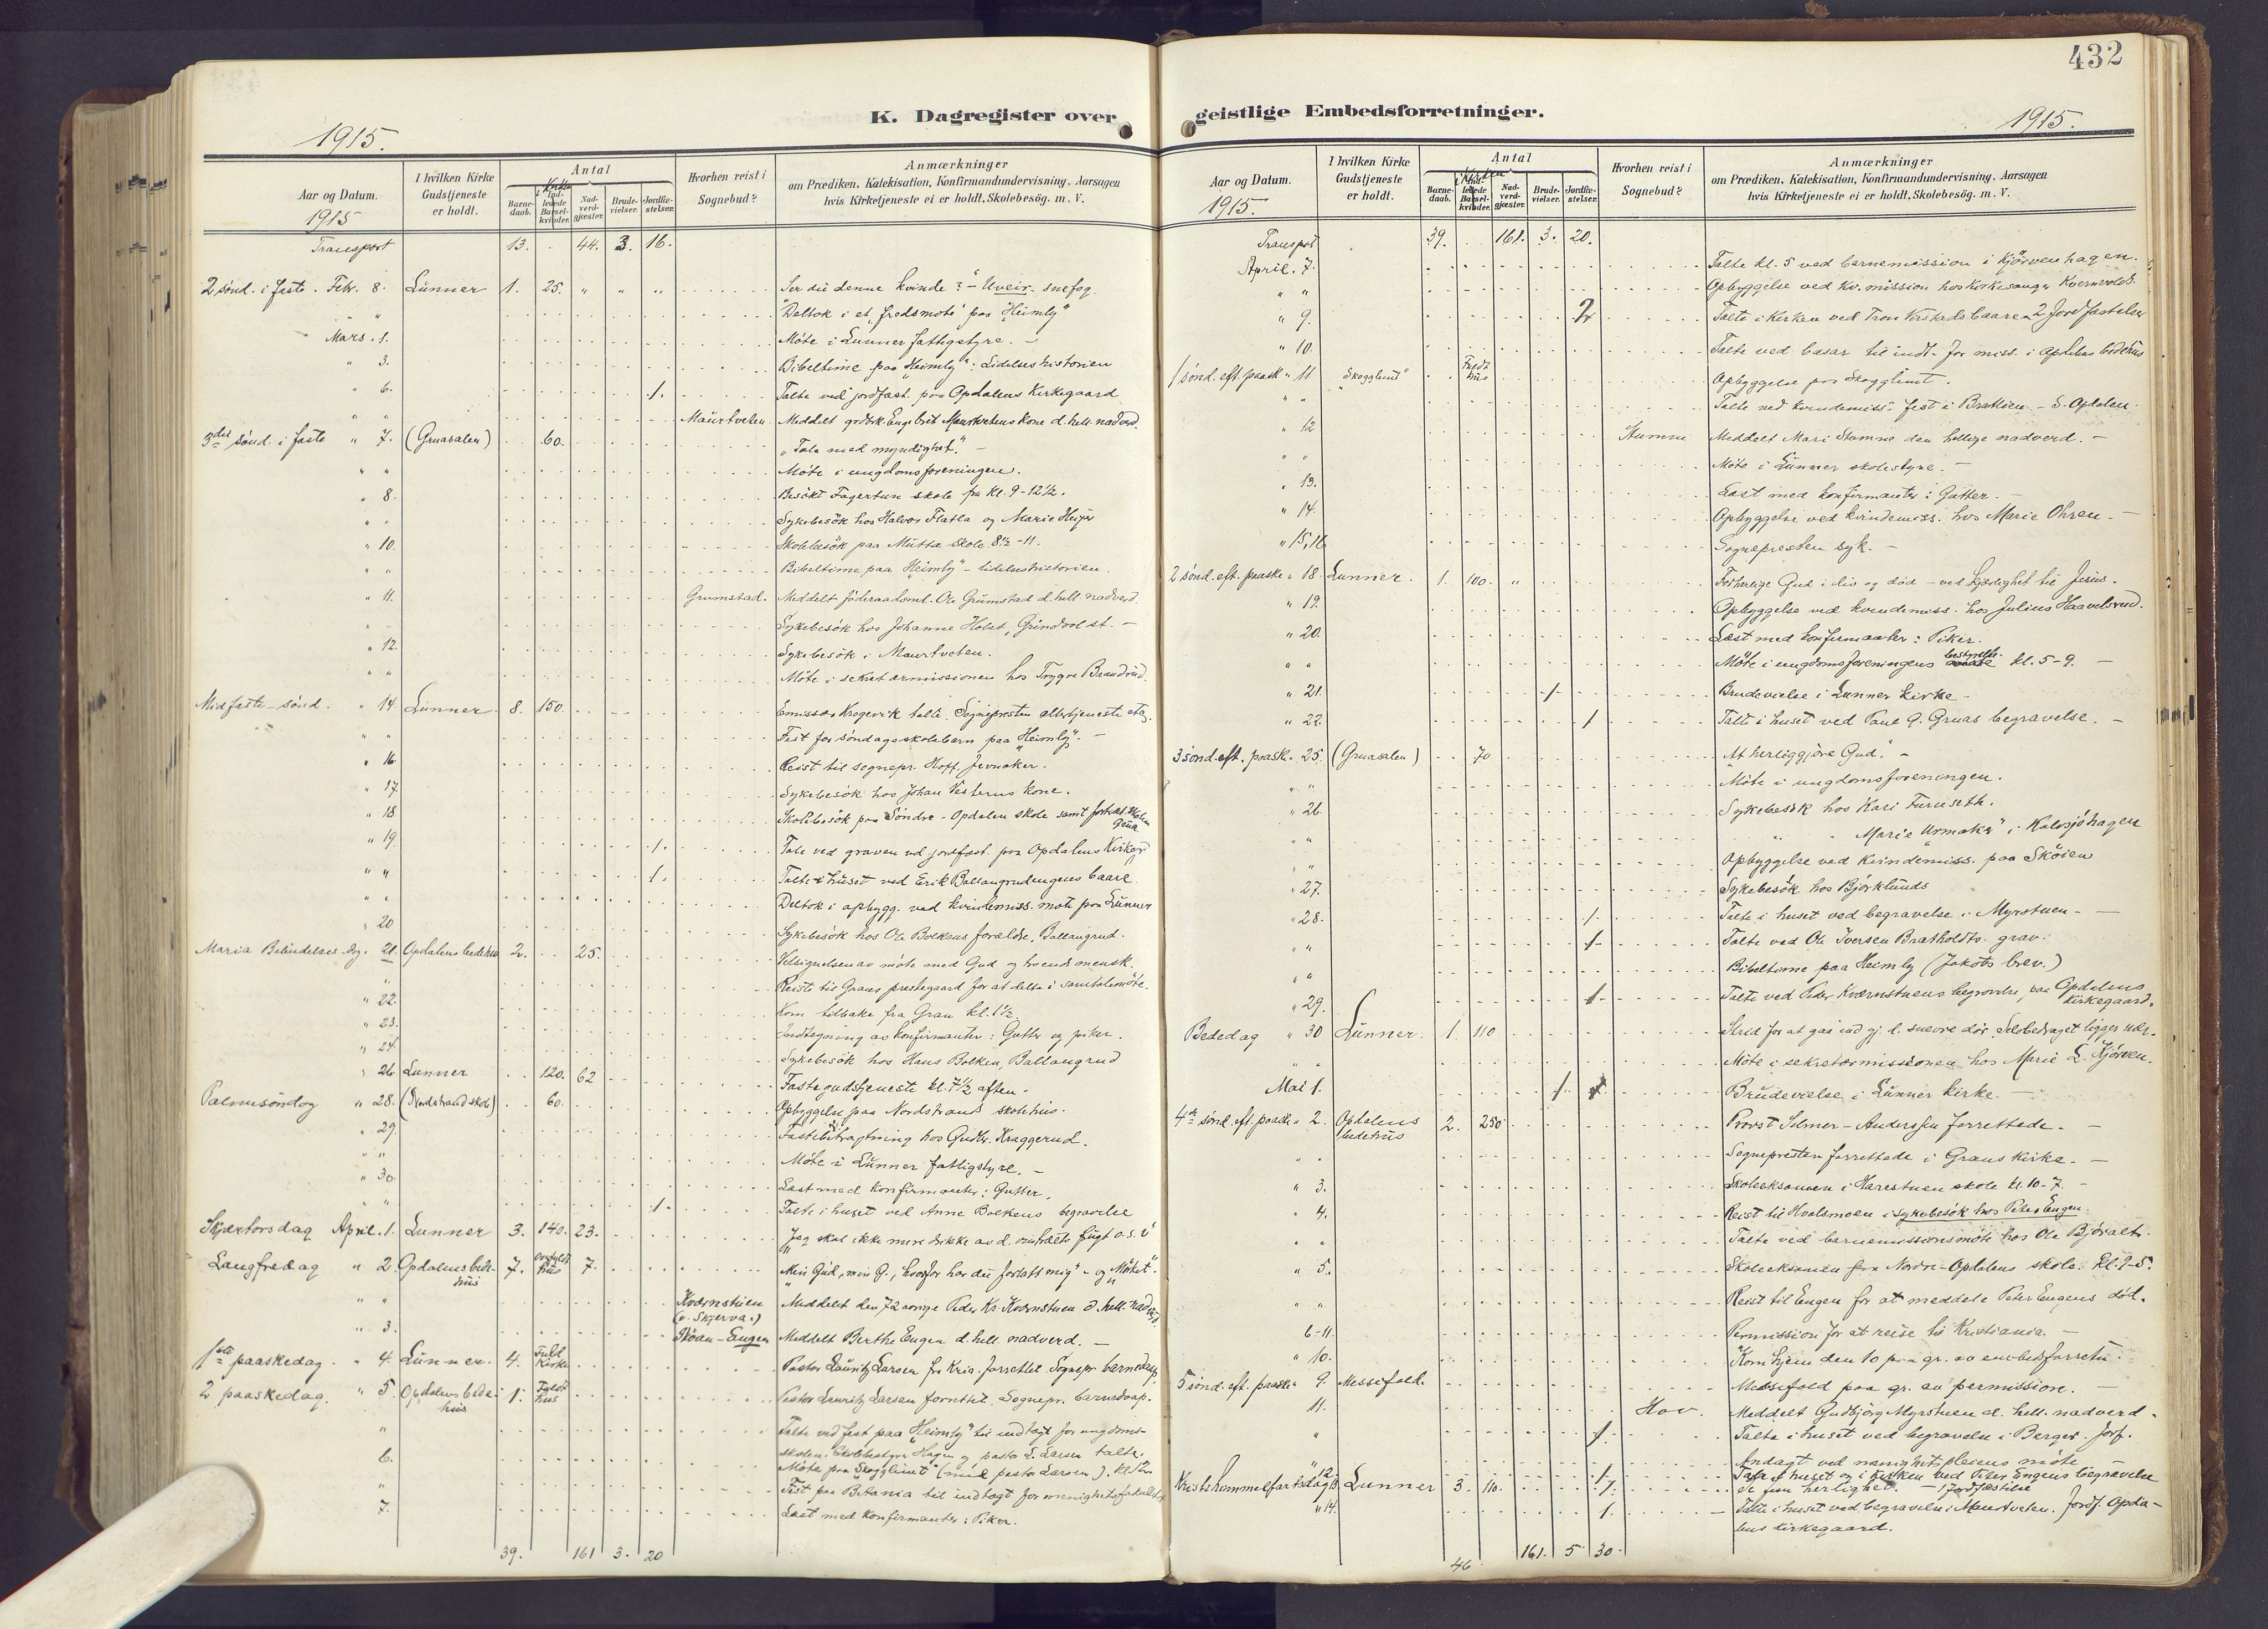 432
K. Dagregister over
1915.
Aar og Datum.
1915
I hvilken Kirke Gudstjeneste er holdt.
Antal
i Kirken
Barne-daab.
Ind-ledede Barsel-kvinder.
Nad-verd-gjæster.
Brude-vielser.
Jordfæ-stelser.
Hvorhen reist i Sognebud?
Anmærkninger
om Prædiken, Katekisation, Konfirmandundervisning, Aarsagen
hvis Kirketjeneste ei er holdt, Skolebesög. m. V.
Transport 13. 44. 3. 16.
2 sönd. i faste. Febr. 8. Lunner 1. 25. " " " Ser du denne kvinde? - Uveir. snefog.
" Deltok i et "fredsmöte" paa "Heimly"
Mars. 1. Möte i Lunner fattigstyre. -
" 3. Bibeltime paa "Heimly": Lidelseshistorien
" 6. 1. Talte ved jordfæst. paa Opdalens Kirkegaard
" " Maurtveten. Meddelt Engebret Maurtvetens kone d. hell. nadverd.
3die sönd. i faste " 7. (Gruasalen) 60. "Tale med myndighet." -
" " Möte i ungdomsforeningen.
" 8. Besökt Fagertun skole fra Kl. 9-12½.
" " Sykebesök hos Halvor Flatla og Marie
" 10. Skolebesök paa Mutta skole 8½-11.
" " Bibeltime paa "Heimly" - lidelseshistorien.
" 11. Grumstad. Meddelt föderaadsmd. Ole Grumstad d. hell. nadverd.
" " Sykebesök hos Johanne Holst, Grindvol st. -
" 12. Sykebesök i Maurtveten.
" " Möte i sekretærmissionen hos Trygve Brandrud.
Midfaste-sönd. " 14 Lunner 8. 150. Emissær Krogevik talte. Sognepresten altertjeneste
" " Fest for söndagsskolebarn paa "Heimly". -
" 16. Reist til sognepr. Hoff, Jevnaker.
" 17. Sykebesök hos Johan Vesterns kone.
" 18 Skolebesök paa Söndre-Opdalen skole samt
Grua
" 19. 1. Tale ved graven ved jordfæst. paa Opdalens Kirkegd
" " 1. Talte i huset ved Erik Ballangrudengens baare
" " Deltok i opbygg. ved kvindemiss. möte paa Lunner
" 20 Sykebesök hos Ole Bolkens forældre, Ballangrud.
Maria Bebudelses dg. 21. Opdalens bedehus 2. 25. Velsignelsen av möte med Gud og troende mensk.
" Reiste til Grans prestegaard for at delta i samtalemöte.
" 22. Kom tilbake fra Gran kl. 1½.
" 23. Indtegning av konfirmanter: Gutter og piker.
" 24. Sykebesök hos Hans Bolken, Ballangrud
" 26 Lunner 120. 62 Fastegudstjeneste kl. 7½ aften.
Palmesöndag " 28. (Nordstrand skole) 60. Opbyggelse paa Nordstrand skolehus.
" 29. Fastebetragtning hos Gudbr. Kraggerud.
" " Möte i Lunner fattigstyre. -
" 30. Læst med konfirmanter: Gutter.
" " 1. Talte i huset ved Anne Bolkens begravelse
Skjærtorsdag April. 1. Lunner 3. 140. 23. "Jeg skal ikke mere drikke av d. vintræets frugt o.s.v"
Langfredag " 2. Opdalens bede-hus 7. hus 7. "Min Gud, min G., hvorfor har du forlatt mig" - og "Mörket".
" " Kværnstuen (v. Skjerva.) Meddelt den 72 aarige Peder Kr. Kværnstuen d. hell. nadv.
" 3. Engen Meddelt Berthe Engen d. hell. nadverd. -
1ste paaskedag. " 4. Lunner. 4. Fuld Kirke Pastor Lauritz Larsen fra Kria. forrettet. Sognepr. barnedaap.
2 paaskedag. " 5. Opdalens bede-hus 1. Fuldt hus Pastor Lauritz Larsen forrettet. Sognepr. barnedaap.
" Talte ved fest paa "Heimly" til indtægt for ungdoms-
skolen. Skolebestyrer Hagen og pastor L. Larsen talte.
6. Möte paa "Skogglimt" (med pastor Larsen),
" Fest paa Betania til indtægt for menighetsfakultetet
7. Læst med konfirmanter: Piker.
39. 161 3. 20
geistlige Embedsforretninger.
1915.
Aar og Datum.
1915.
I hvilken Kirke Gudstjeneste er holdt.
Antal
i Kirken
Barne-daab.
Ind-ledede Barsel-kvinder.
Nad-verd-gjæster.
Brude-vielser.
Jordfæ-stelser.
Hvorhen reist i Sognebud?
Anmærkninger
om Prædiken, Katekisation, Konfirmandundervisning, Aarsagen
hvis Kirketjeneste ei er holdt, Skolebesög. m. V.
Transport 39. 161. 3. 20.
April. 7. Talte kl. 5 ved barnemission i Kjörvenhagen.
" " Opbyggelse ved Kv. mission hos Kirkesanger Kværnvolds.
" 9. 2 Talte i Kirken ved baare. 2 Jordfæstelser
" 10. Talte ved basar til indt. for miss. i Opdalens bedehus
1 sönd. eft. paaske " 11. "Skogglimt" Fuldt hus Opbyggelse paa Skogglimt.
" " Talte ved kvindemiss. fest i Bratlien - S. Opdalen.
" 12 Stumne Meddelt Mari Stumne den hellige nadverd. -
" " Möte i Lunner skolestyre. -
" 13. Læst med konfirmanter: Gutter. -
" 14. Opbyggelse ved kvindemiss. hos Marie Ohren. -
" 15, 16 Sognepresten syk. -
2 sönd. eft. paaske " 18. Lunner. 1. 100. " Forherlige Gud i liv og död - ved kjærlighet til Jesus.
" 19. Opbyggelse ved kvindemiss. hos Julius Haavelsrud.
" 20. Læst med konfirmanter: Piker.
" " Möte i ungdomsforeningens bestyrelse kl. 5-9. -
" 21. 1 Brudevielse i Lunner kirke -
" 22. 1 Talte i huset ved Paul G. Gruas begravelse. -
3 sönd. eft. paaske " 25. (Gruasalen) 70 "At herliggjöre Gud." -
" " Möte i ungdomsforeningen.
" 26 Sykebesök hos Kari Furuseth.
" " " " Marie "Urmaker" i Kalvsjöhagen
" " Opbyggelse ved Kvindemiss. paa Sköien
" 27. Sykebesök hos Björklunds
" 28. 1. Talte i huset ved begravelse i Myrstuen -
" " 1. Talte ved Ole Iversen Bratholdts grav.
" " Bibeltime paa Heimly (Jakobs brev.)
" 29. 1. Talte ved Peder Kværnstuens begravelse, paa Opdalens kirkegaard.
Bededag " 30 Lunner. 1. 110 Strid for at gaa ind gj. d. snevre dör. Selvbedraget ligger nær.
" " Möte i sekretærmissionen hos Marie L. Kjörven.
Mai 1. 1. Brudevielse i Lunner kirke. -
4de sönd. eft. paaske " 2. Opdalens bedehus 2. 250 Provst Selmer-Anderssen forrettede. -
" " Sognepresten forrettede i Grans kirke. -
" 3. Skoleeksamen i Harestuen skole kl. 10-7. -
" 4. Reist til Hvalsmoen i sykebesök hos Peter Engen.
" " Talte ved barnemissionsmöte hos Ole Björalt.
" 5. Skoleeksamen paa Nordre-Opdalens skole. Kl. 9-5.
" " Reist til Engen for at meddele Peter Engens död.
6-11. Permission for at reise til Kristiania. -
" 10. Kom hjem den 10 paa gr. av embedsforretn. -
5 sönd. eft. paaske " 9. Messefald. Messefald paa gr. av permission. -
11. Hov. Meddelt Gudbjörg Myrstuen d. hell. nadverd.
" 1. Talte i huset ved begravelse i Berger. Jorf.
Andagt ved menighetspleiens möte
" 12. 1. Talte i huset og i kirken ved Peter Engens begravelse
Kristi himmelfartsdag 13. Lunner 3. 110. 1. Se hun herlighet. - 1 jordfæstelse
" 14. 1. Talte i huset ved begravelse i Maurtveten. Jordf. Opda-
lens kirkegaard.
46 161. 5 30.